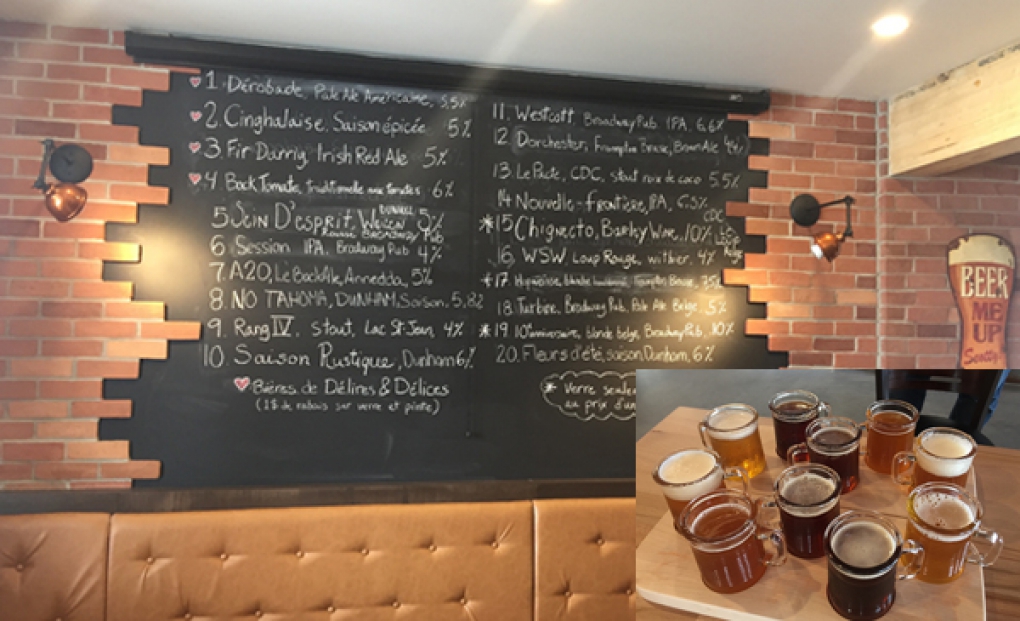 ♥ 1. Dérobade, Pale Ale Américaine, 5,5%
♥ 2. Cinghalaise, Saison épicée 5%
♥ 3. Fir Darrig, Irish Red Ale 5%
♥ 4. Back Tomate, traditionelle aux tomates 6%
5 Sein D'esprit, Weizen 5%
DUNKEL
BROADWAY Pub
6 Session IPA, Broadway Pub 4%
7 A20, Le BockAle, Annedda, 5%
8. NO TAHOMA, DUNHAM, Saison, 5,8%
9. Rang IV, stout, Lac St-Jean, 4%
10. Saison Rustique, Dunham 6%
♥ Bières de Délires & Délices
(1$ de rabais sur verre et pinte)
11. Westcott, Broadway Pub, IPA, 6.6%
12 Dorchester, Frampton Brasse, Brown Ale
13 Le Pacte, CDC, stout noix de coco 5.5%
14 Nouvelle-frontière, IPA, 6.5%
CDC
*15 Chignecto, Barley Wine, 10%
16. WSW, Loup Rouge, witbier, 4%
*17. Frampton Brasse,
18. Turbine, Broadway Pub, Pale Ale Belge, 5%
*19 10e anniversaire, blonde belge, Broadway Pub, 10%
20. Fleurs d'été, saison, Dunham, 6%
* Verre seule
au prix d'un
BEER
ME
UP
Scotty